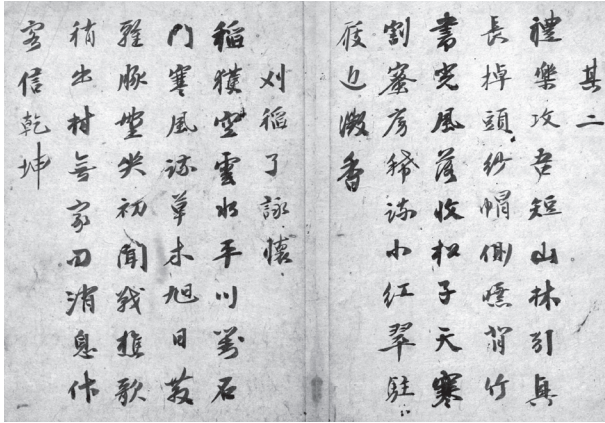 其二
禮樂攻吾短山林引興
長掉頭紗帽側曝背竹
書光風落收松子天寒
割蜜房稀疎小紅翠駐
屐近微香
刈稻了詠懷
稻獲空雲水平川對石
門寒風疎草木旭日散
雞豚埜哭初聞戰樵歌
稍出村無家問消息作
客信乾坤